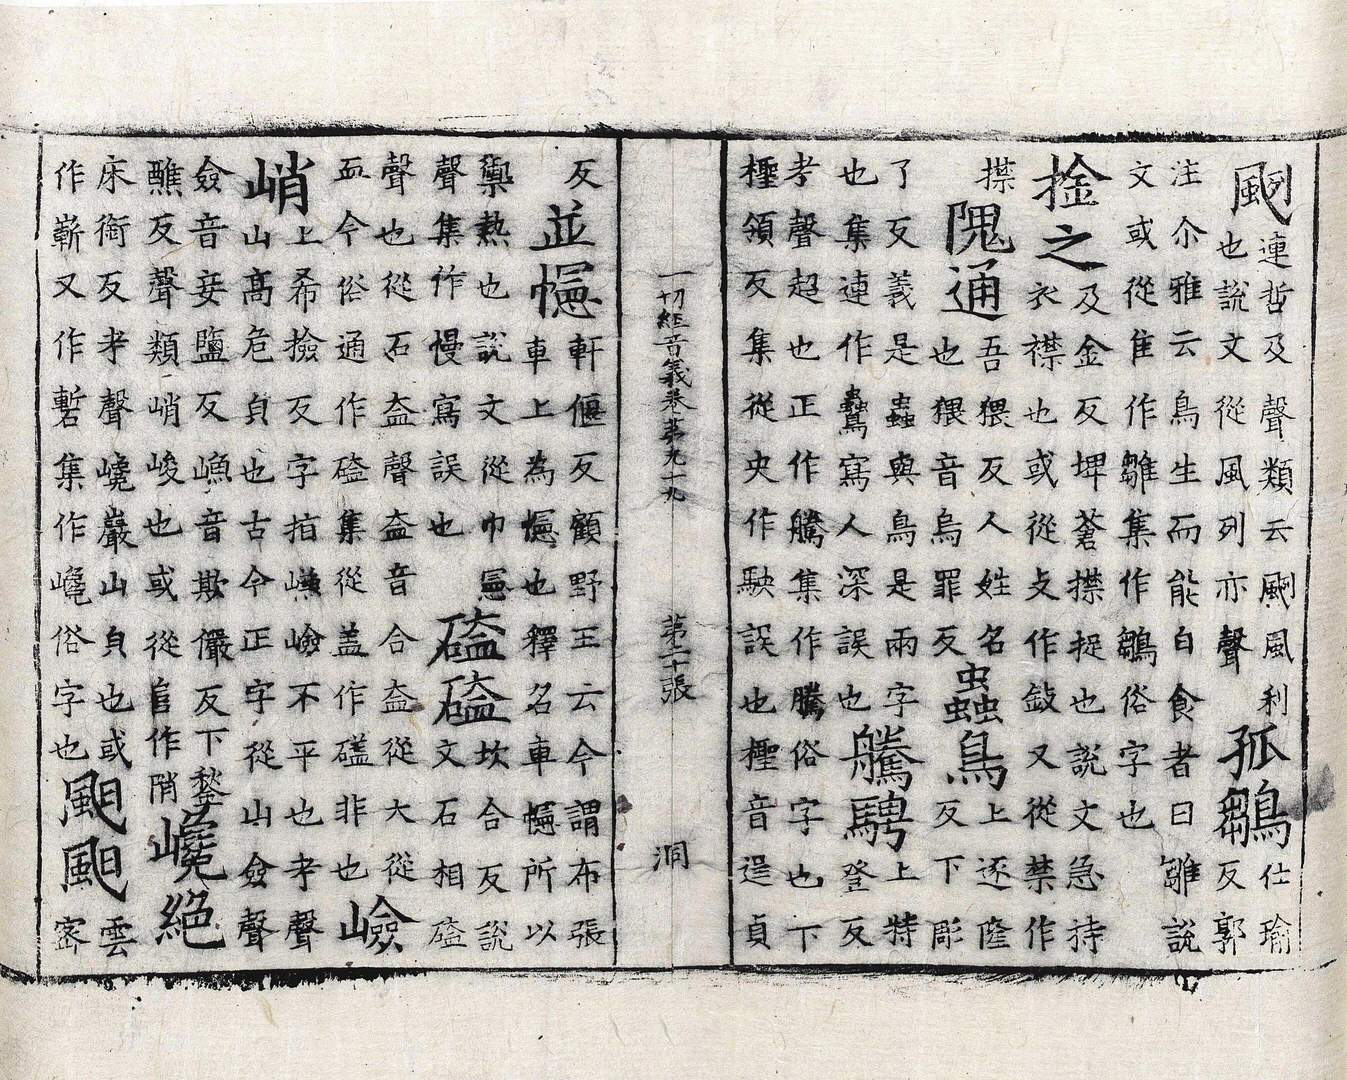 颲連哲及聲類云颲風利
也說文從風列亦聲孤鶵仕瑜反郭
注尒雅云鳥生而能自食者曰雛說
文或從隹作雛集作鶵俗字也
捦之及金反埤蒼㩒捉也說文急持
衣襟也或從攴作㪁又從禁作
㩒隗通吾猥反人姓名
也猥音烏罪反蟲鳥上逐隆
反下彫
了反義是蟲與鳥是兩字
也集連作䖝鳥寫人深誤也騰騁上特
登反
考聲超也正作騰集作騰俗字也下
𣖙領反集從史作駛誤也𣖙音逞貞
一切經音義卷第九十九 第二十張 洞
反並幰軒偃反顧野王云今謂布張
車上為幰也釋名車幰所以
禦熱也說文從巾憲
聲集作慢寫誤也磕磕坎合反說
文石相磕
聲也從石盍聲盍音合盍從大從
血今俗通作磕集從盖作礚非也嶮
峭上希撿反字指嶮嶮不平也考聲
山高危皃也古今正字從山僉聲
僉音妾鹽反嶮音欺儼反下鍫
醮反聲類峭峻也或從𨸏作陗巉絕
床銜反考聲巉巖山皃也或
作嶄又作蹔集作巉俗字也䬕䬕雲
密